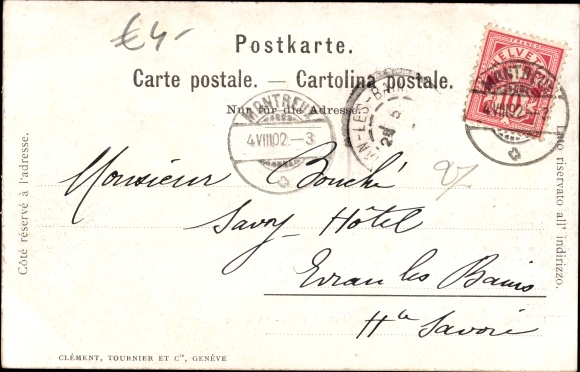 €4-
Postkarte.
Carte postale. — Cartolina postale.
Nur für die Adresse.
HELVETIA
MONTREUX
4 VIII 02. - 3
MONTREUX
4 VIII 02. - 3
Côté réservé à l'adresse.
riservato all' indirizzo.
Monsieur Bouché
Savoy-Hôtel
Evian les Bains
Hte Savoie
CLÉMENT, TOURNIER ET Cie, GENÈVE